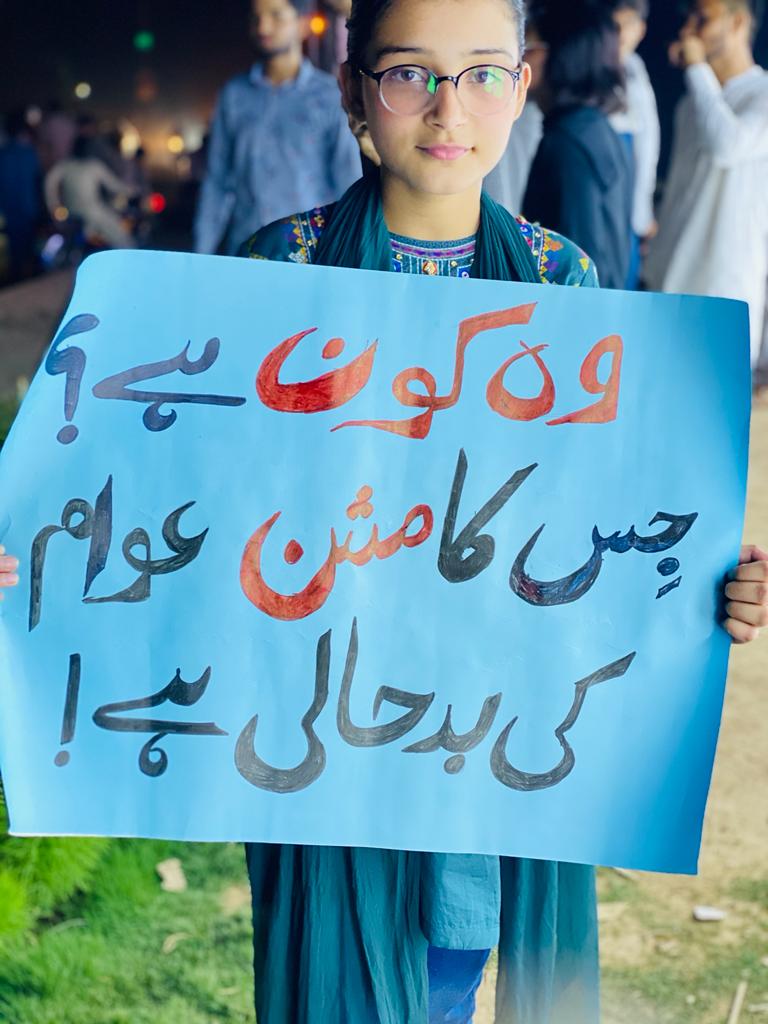 وہ کون ہے؟
جس کا مشن عوام
کی بدحالی ہے!